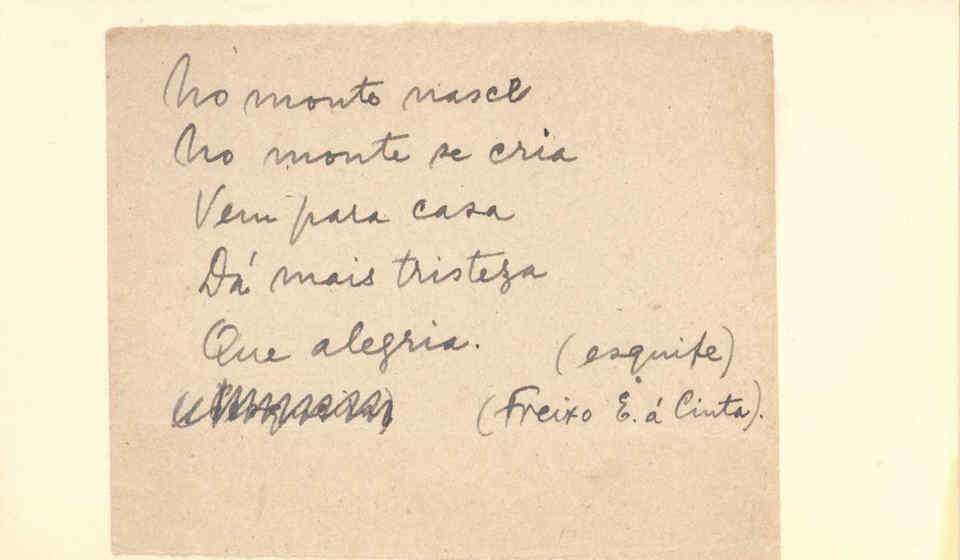 No monte nasce
No monte se cria
Vem para casa
Dá mais tristeza
Que alegria. (esquife)
(Freixo E. á Cinta).